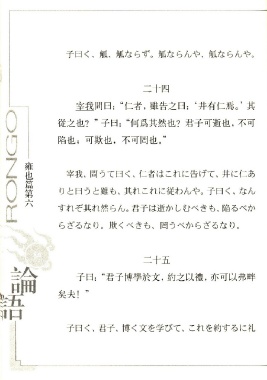 子曰く、觚、觚ならず。觚ならんや、觚ならんや。
二十四
宰我問曰：“仁者，雖告之曰：‘井有仁焉。’其
從之也？”子曰：“何爲其然也？君子可逝也，不可
陷也；可欺也，不可罔也。”
宰我、問うて曰く、仁者はこれに告げて、井に仁あ
りと曰うと雖も、其れこれに従わんや。子曰く、なん
すれぞ其れ然らん。君子は逝かしむべきも、陥るべか
らざるなり。欺くべきも、罔うべからざるなり。
二十五
子曰：“君子博學於文，約之以禮，亦可以弗畔
矣夫！”
子曰く、君子、博く文を学びて、これを約するに礼
RONGO
雍也篇第六
論語